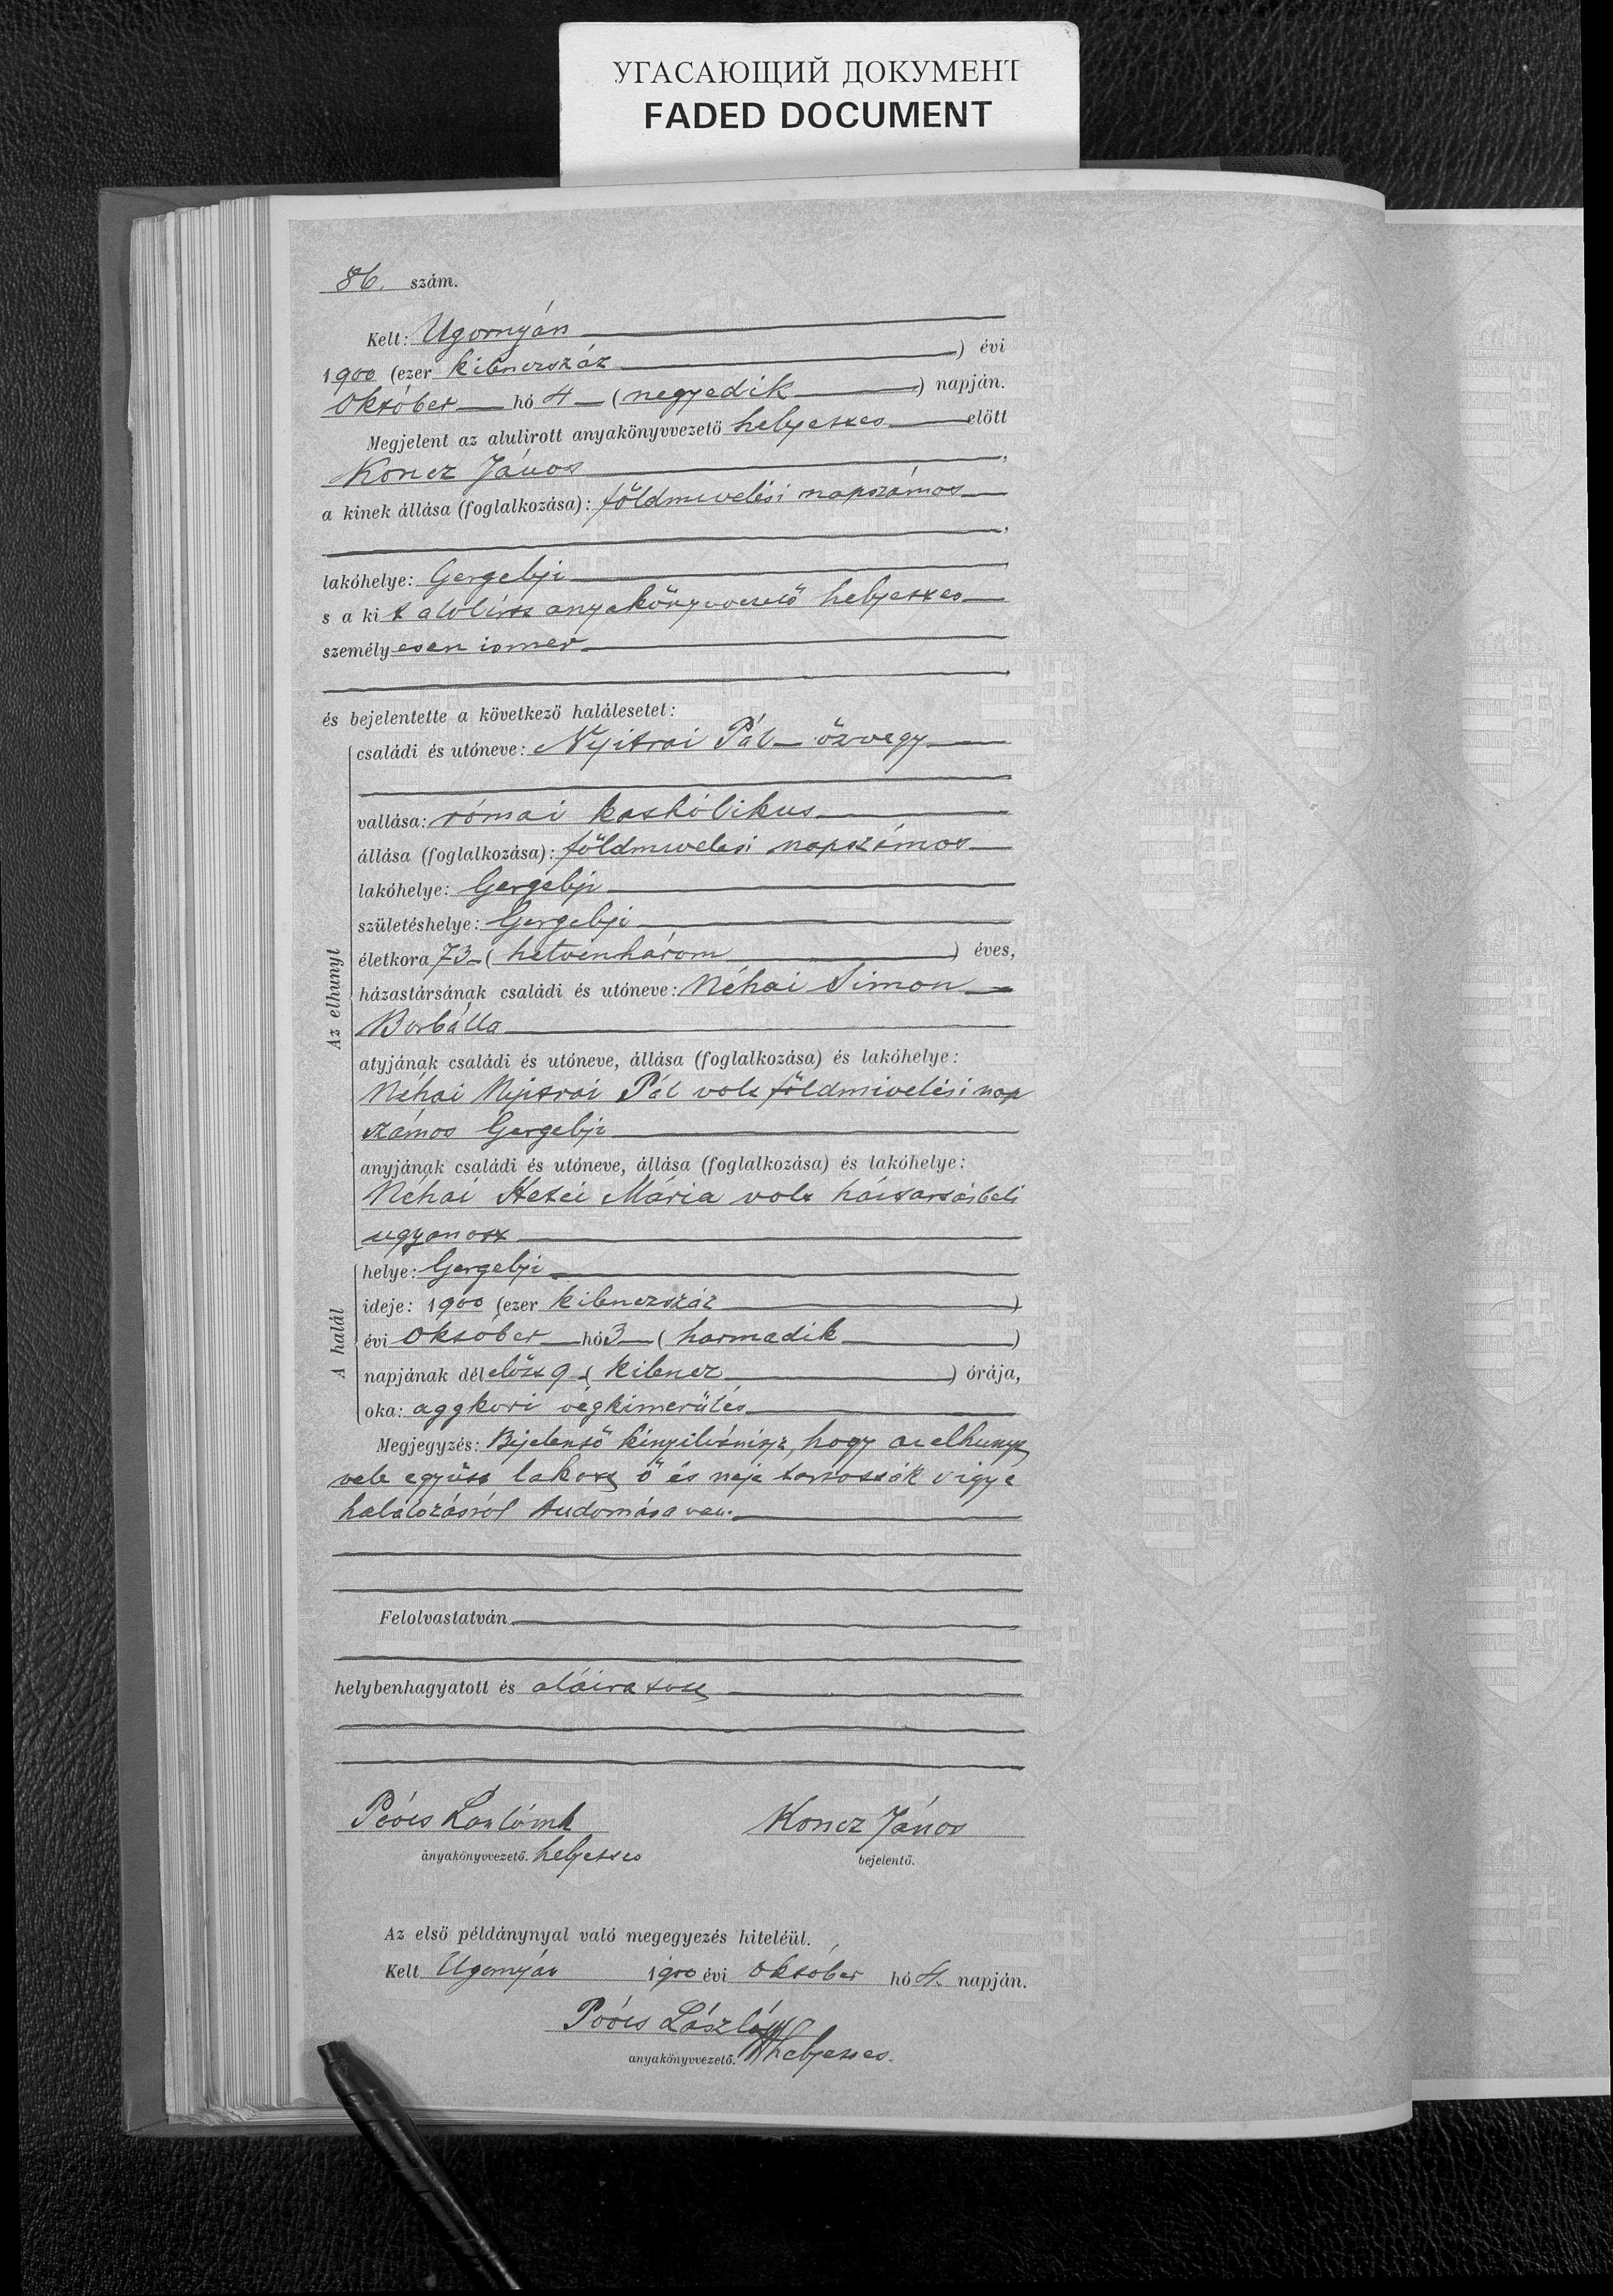 УГАСАЮЩИЙ ДОКУМЕНТ
FADED DOCUMENT
86. szám.
Kelt: Ugornyán
1900 (ezer kilenczszáz) évi
október hó 4 (negyedik) napján.
Megjelent az alulirott anyakönyvvezető helyettes előtt
Koncz János,
a kinek állása (foglalkozása): földmivelési napszámos
,
lakóhelye: Gergelyi
s a kit alólirt anyakönyvvezető helyettes
személyesen ismer
és bejelentette a következő halálesetet:
Az elhunyt
családi és utóneve: Nyitrai Pál özvegy
vallása: római katholikus
állása (foglalkozása): földmivelesi napszámos
lakóhelye: Gergelyi
születéshelye: Gergelyi
életkora 73 (hetvenhárom) éves,
házastársának családi és utóneve: Néhai Simon
Borbálla
atyjának családi és utóneve, állása (foglalkozása) és lakóhelye:
Néhai Nyitrai Pál volt földmivelési nap
számos Gergelyi
anyjának családi és utóneve, állása (foglalkozása) és lakóhelye:
Néhai Mária volt háztartásbeli
ugyanott
A halál
helye: Gergelyi
ideje: 1900 (ezer kilenczszáz)
évi október hó 3 (harmadik)
napjának délelőtt 9 (kilencz) órája,
oka: aggkori végkimerülés
Megjegyzés: Bejelentő kinyilvánitja, hogy az elhunyt
vele együtt lakott ő és neje tartották s igy e
halálozásról tudomása van.
Felolvastatván
helybenhagyatott és aláiratott
Póócs László mk Koncz János
anyakönyvvezető. helyettes bejelentő.
Az első példánynyal való megegyezés hiteléül.
Kelt Ugornyán 1900 évi október hó 4. napján.
Póócs László
anyakönyvvezető. helyettes.